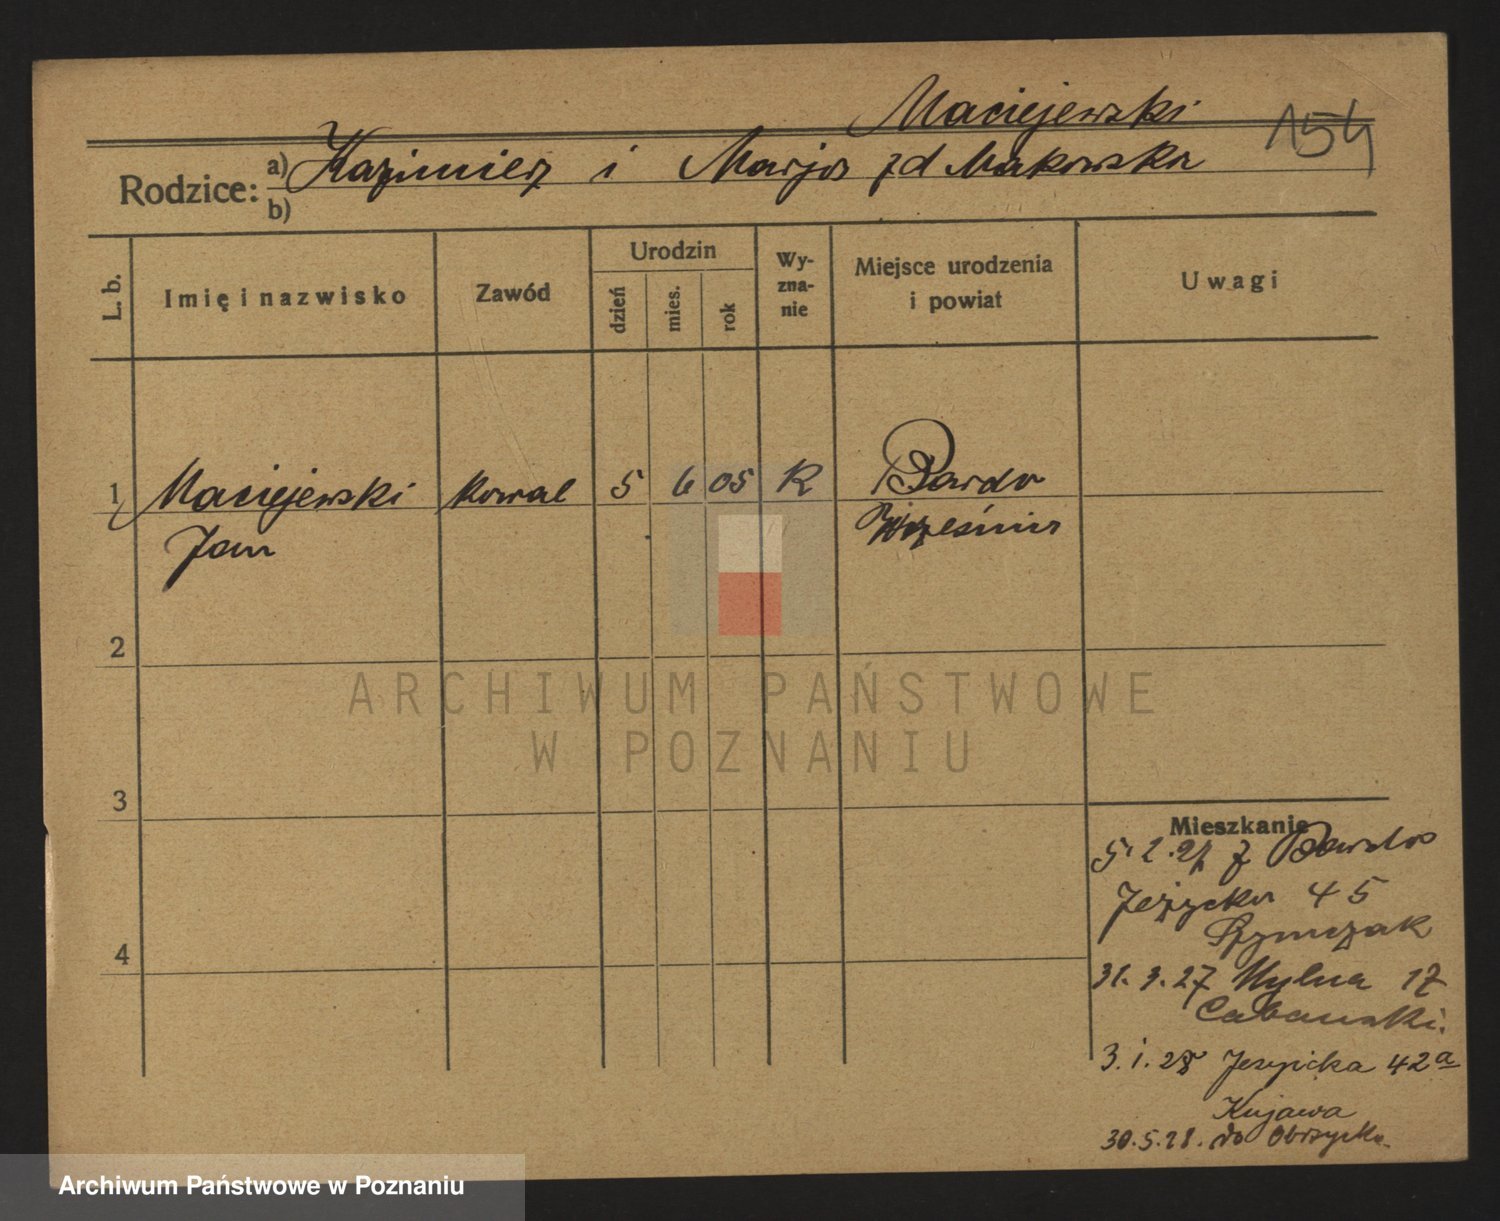 Maciejewski
154
Rodzice: a) Kazimierz i Marja zd Makowska
b)
L. b.
Imię i nazwisko
Zawód
Urodzin
dzień
mies.
rok
Wy-
zna-
nie
Miejsce urodzenia
i powiat
Uwagi
1 Maciejewski kowal 5 6 05 K Bardo
Jan Września
2
3
4
Mieszkanie
5.2.27 z Bardo
Jeżycka 45
Szymczak
31.3.27 Mylna 17
Cabanski.
3.1.28 Jezycka 42a
Kujawa
30.5.28. do Obrzycka
ARCHIWUM PAŃSTWOWE
W POZNANIU
Archiwum Państwowe w Poznaniu